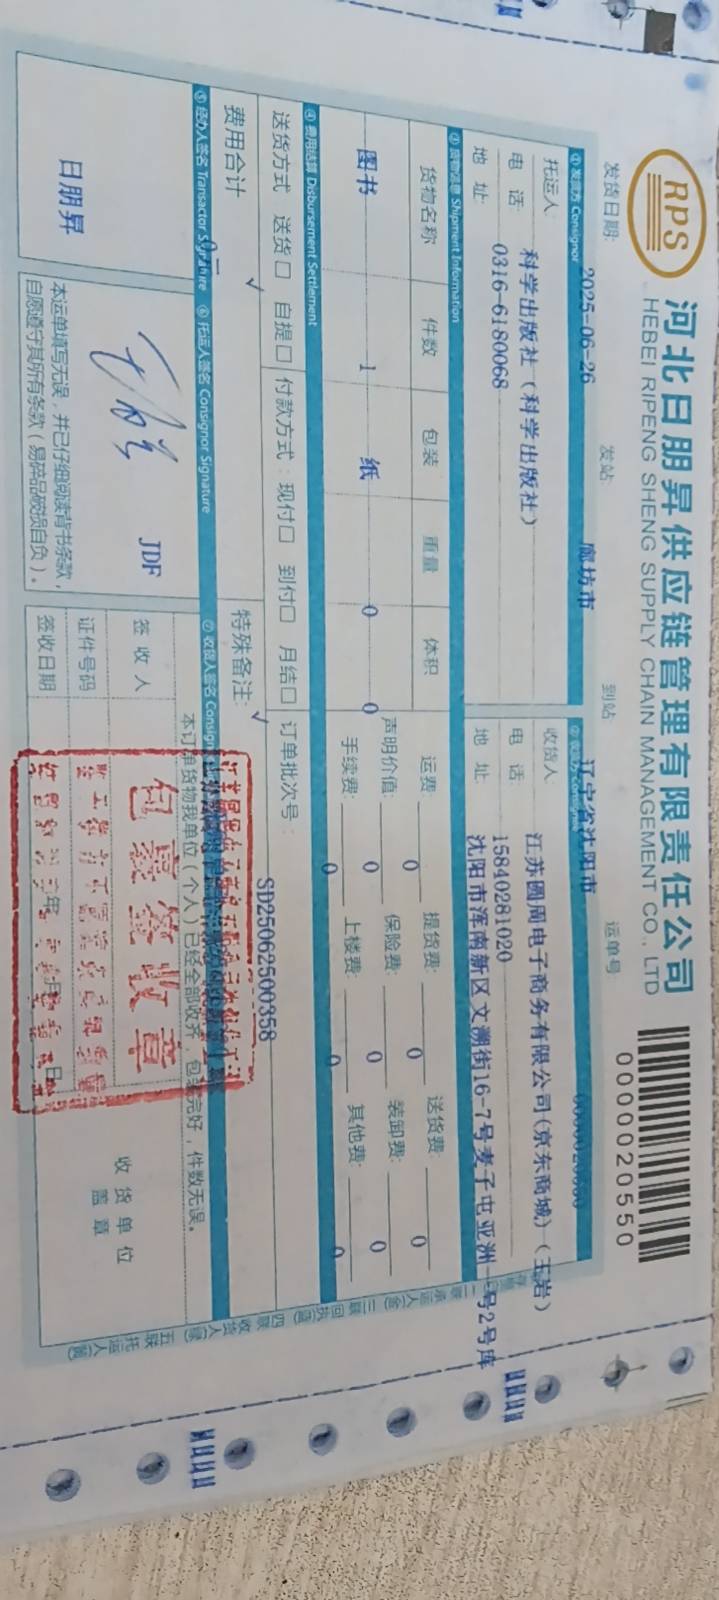 RPS
河北日朋昇供应链管理有限责任公司
HEBEI RIPENG SHENG SUPPLY CHAIN MANAGEMENT CO., LTD
0000020550
发货日期: 2025-06-26 发站: 廊坊市 到站: 辽宁省沈阳市 运单号: 0000020550
① 发货方 Consignor
托运人: 科学出版社（科学出版社）
电 话: 0316-6180068
地 址:
收货人: 江苏圆周电子商务有限公司(京东商城)（王岩）
电 话: 15840281020
地 址: 沈阳市浑南新区文溯街16-7号麦子屯亚洲一号2号库
③ 货物信息 Shipment Information
货物名称 件数 包装 重量 体积
图书 1 纸 0 0
运费: 0 提货费: 0 送货费: 0
声明价值: 0 保险费: 0 装卸费: 0
手续费: 0 上楼费: 0 其他费: 0
④ 费用结算 Disbursement Settlement
送货方式 送货□ 自提□ 付款方式: 现付□ 到付□ 月结□ 订单批次号: SD25062500358
费用合计 特殊备注:
⑤ 经办人签名 Transactor Signature ⑥ 托运人签名 Consignor Signature ⑦ 收货人签名
日朋昇
JDF
本运单填写无误，并已仔细阅读背书条款，
自愿遵守其所有条款（易碎品破损自负）。
本订单货物我单位（个人）已经全部收齐，包装完好，件数无误。
签 收 人
证件号码
签收日期 年 月 日
收货单位
盖章
包裹签收章